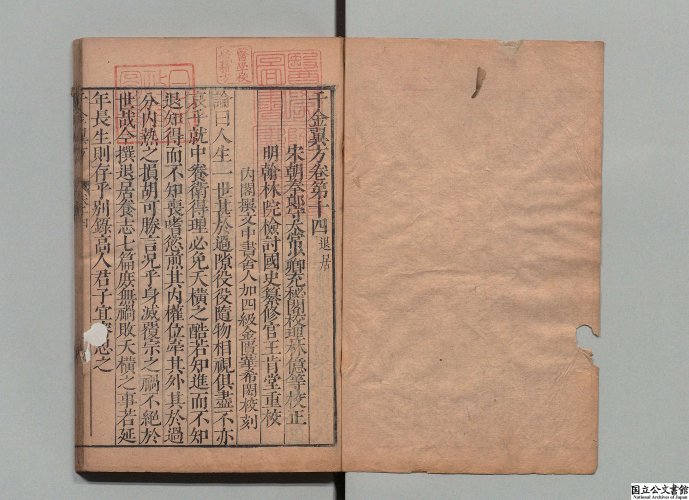 千金翼方卷第十四 退居
宋朝奉郎守太常少卿充祕閣校理林億等校正
明翰林院檢討國史纂修官王肯堂重校
內閣撰文中書舍人加四級金匱華希閎校刻
論曰人生一世甚於過隙役役隨物相視俱盡不亦
哀乎就中養衛得理必免夭橫之酷若知進而不知
退知得而不知喪嗜慾煎其內權位牽其外其於過
分內熱之損胡可勝言況乎身滅覆宗之禍不絕於
世哉今撰退居養志七篇庶無禍敗夭橫之事若延
年長生則存乎別錄高人君子宜審思之
国立公文書館
National Archives of Japan